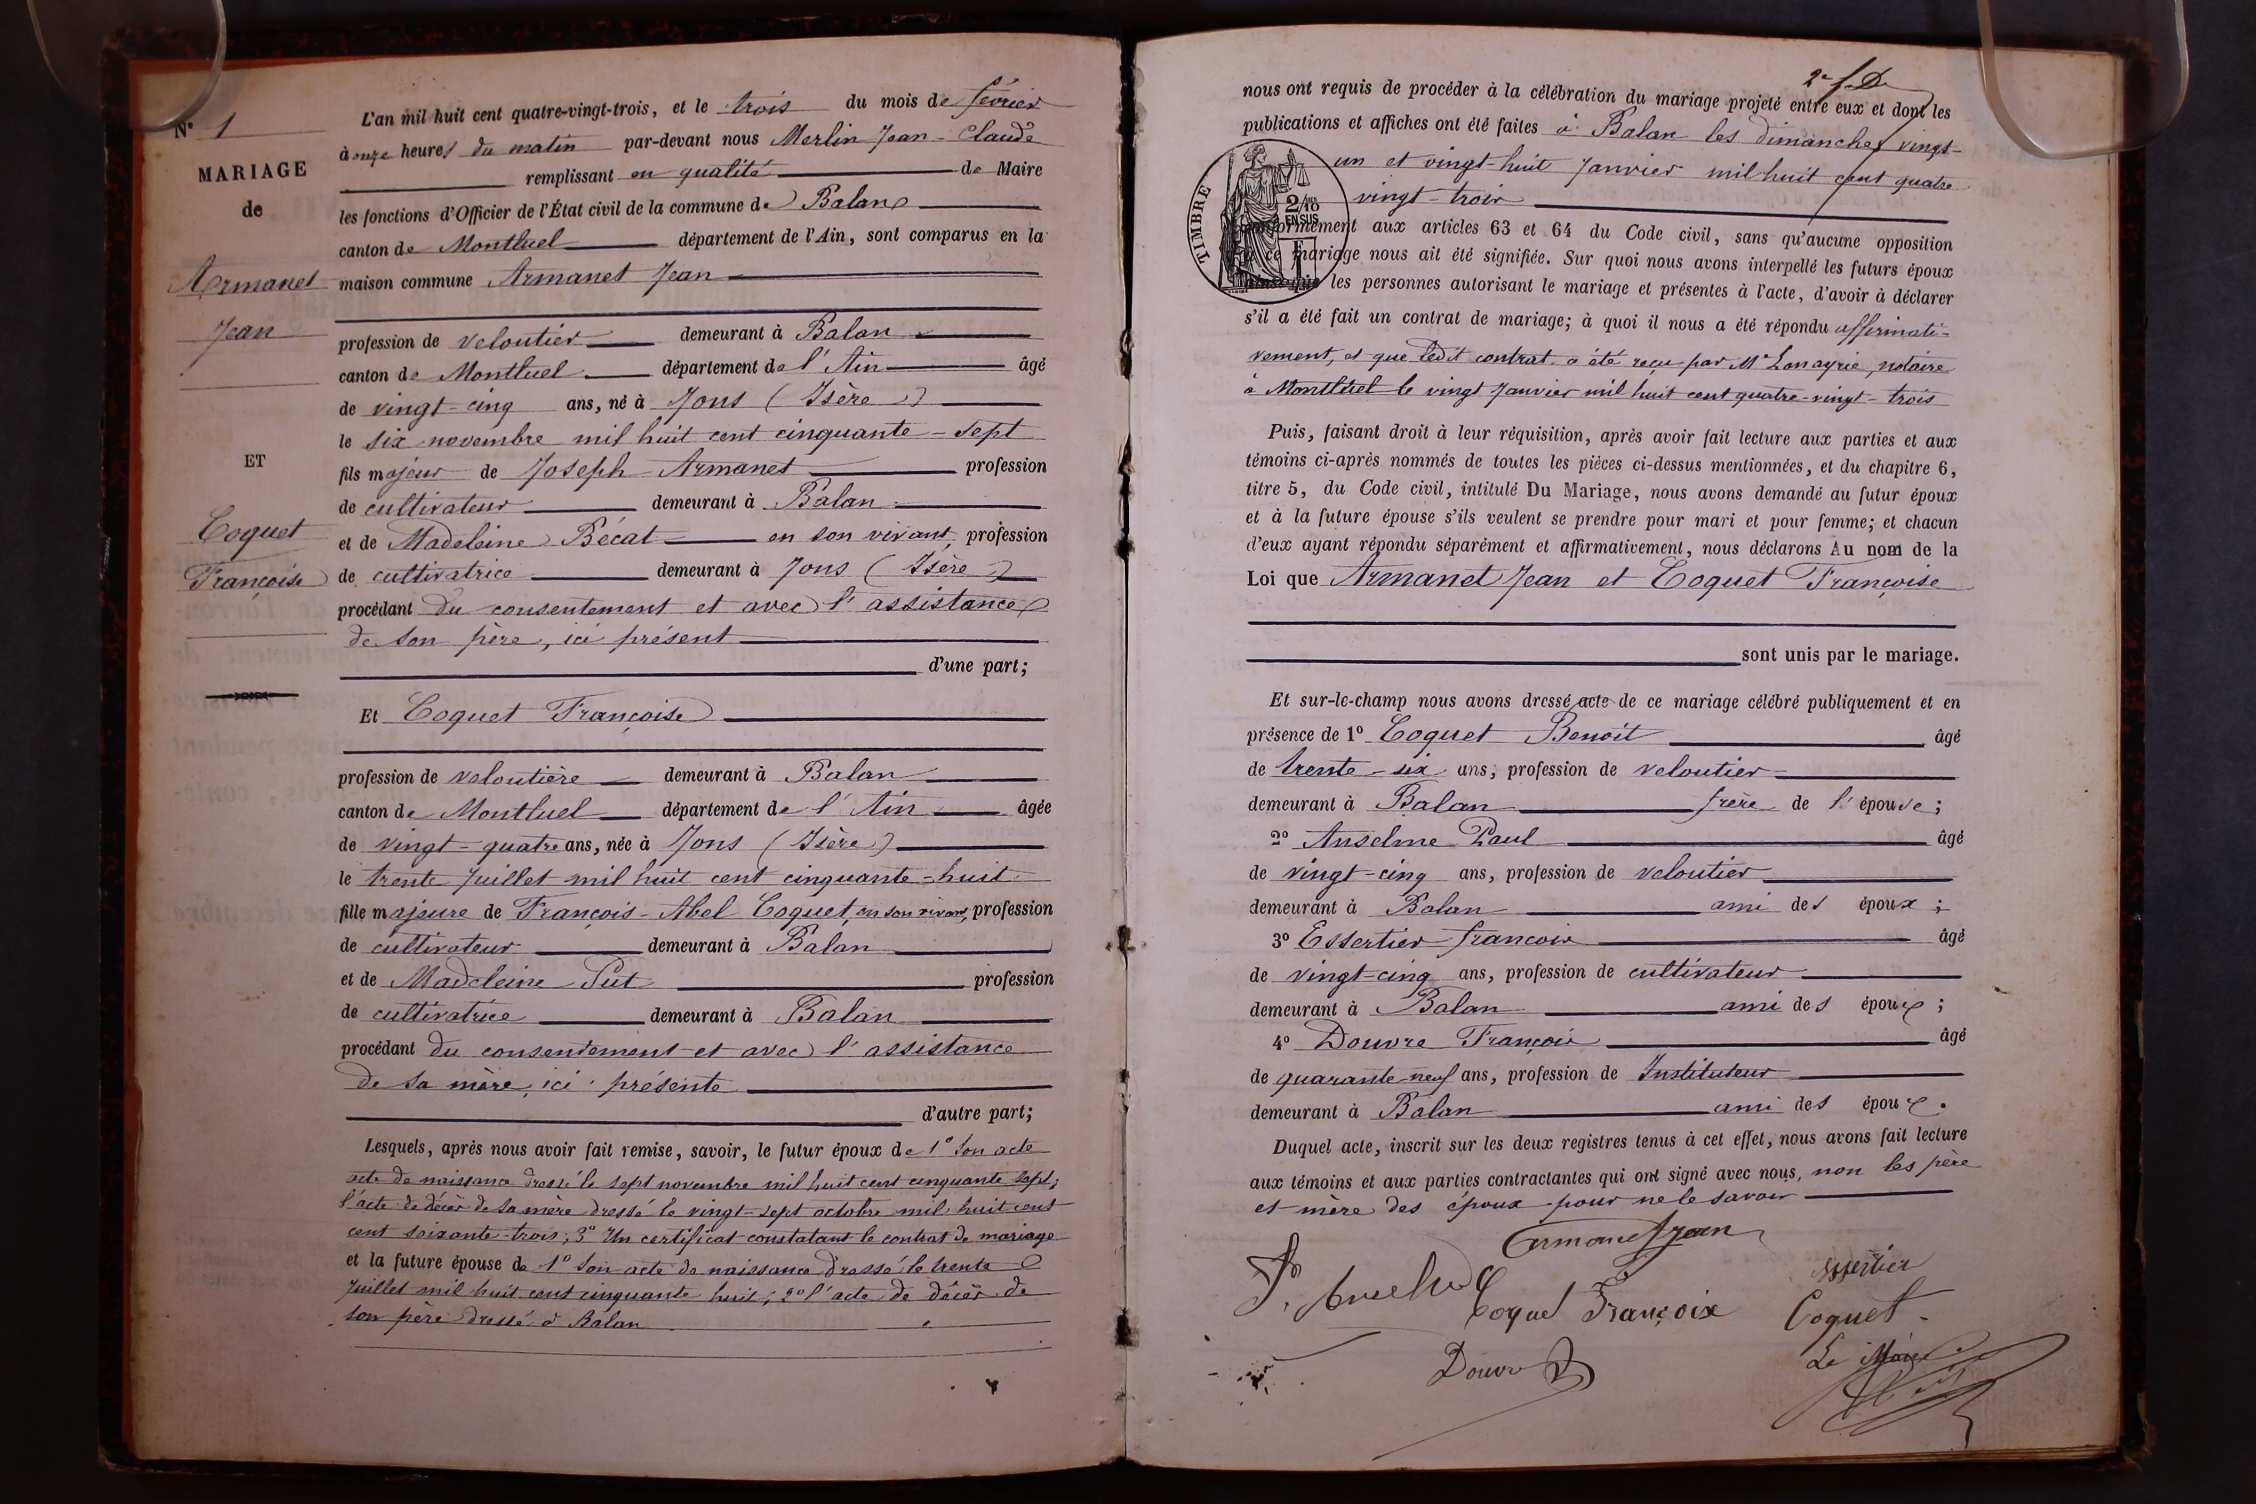 N° 1
MARIAGE
de
Armanet
Jean
ET
Coquet
Françoise
L'an mil huit cent quatre-vingt-trois, et le trois du mois de février
à onze heures du matin par-devant nous Merlin Jean-Claude
remplissant en qualité de Maire
les fonctions d'Officier de l'État civil de la commune de Balan
canton de Montluel département de l'Ain, sont comparus en la
maison commune Armanet Jean
profession de veloutier demeurant à Balan
canton de Montluel département de l'Ain âgé
de vingt-cinq ans, né à Jons (Isère)
le six novembre mil huit cent cinquante-sept
fils majeur de Joseph Armanet profession
de cultivateur demeurant à Balan
et de Madeleine Bécat en son vivant, profession
de cultivatrice demeurant à Jons (Isère)
procédant du consentement et avec l'assistance
de son père, ici présent
d'une part;
Et Coquet Françoise
profession de veloutière demeurant à Balan
canton de Montluel département de l'Ain âgée
de vingt-quatre ans, née à Jons (Isère)
le trente Juillet mil huit cent cinquante-huit
fille majeure de François-Abel Coquet, en son vivant, profession
de cultivateur demeurant à Balan
et de Madeleine Put profession
de cultivatrice demeurant à Balan
procédant du consentement et avec l'assistance
de sa mère, ici présente
d'autre part;
Lesquels, après nous avoir fait remise, savoir, le futur époux de 1° son acte
acte de naissance dressé le sept novembre mil huit cent cinquante sept;
l'acte de décès de sa mère dressé le vingt-sept octobre mil huit cent
cent soixante-trois; 3° Un certificat constatant le contrat de mariage
et la future épouse de 1° son acte de naissance dressé le trente
Juillet mil huit cent cinquante huit; 2° l'acte de décès de
son père dressé à Balan
2e f. D.
nous ont requis de procéder à la célébration du mariage projeté entre eux et dont les
publications et affiches ont été faites à Balan les dimanches vingt-
un et vingt-huit Janvier mil huit cent quatre
vingt-trois
TIMBRE
2/10
EN SUS
conformément aux articles 63 et 64 du Code civil, sans qu'aucune opposition
à ce mariage nous ait été signifiée. Sur quoi nous avons interpellé les futurs époux
ainsi que les personnes autorisant le mariage et présentes à l'acte, d'avoir à déclarer
s'il a été fait un contrat de mariage; à quoi il nous a été répondu affirmati-
vement, et que ledit contrat a été reçu par Me Lonayrie, notaire
à Montluel le vingt Janvier mil huit cent quatre-vingt-trois
Puis, faisant droit à leur réquisition, après avoir fait lecture aux parties et aux
témoins ci-après nommés de toutes les pièces ci-dessus mentionnées, et du chapitre 6,
titre 5, du Code civil, intitulé Du Mariage, nous avons demandé au futur époux
et à la future épouse s'ils veulent se prendre pour mari et pour femme; et chacun
d'eux ayant répondu séparément et affirmativement, nous déclarons Au nom de la
Loi que Armanet Jean et Coquet Françoise
sont unis par le mariage.
Et sur-le-champ nous avons dressé acte de ce mariage célébré publiquement et en
présence de 1° Coquet Benoît âgé
de trente-six ans, profession de veloutier
demeurant à Balan frère de l'épouse;
2° Anselme Paul âgé
de vingt-cinq ans, profession de veloutier
demeurant à Balan ami des époux;
3° Essertier françois âgé
de vingt-cinq ans, profession de cultivateur
demeurant à Balan ami des époux;
4° Douvre François âgé
de quarante-neuf ans, profession de Instituteur
demeurant à Balan ami des époux.
Duquel acte, inscrit sur les deux registres tenus à cet effet, nous avons fait lecture
aux témoins et aux parties contractantes qui ont signé avec nous, non les père
et mère des époux pour ne le savoir
Armanet Jean
P. Anselme
Essertier
Coquet Françoix
Coquet
Douvre
Le Maire